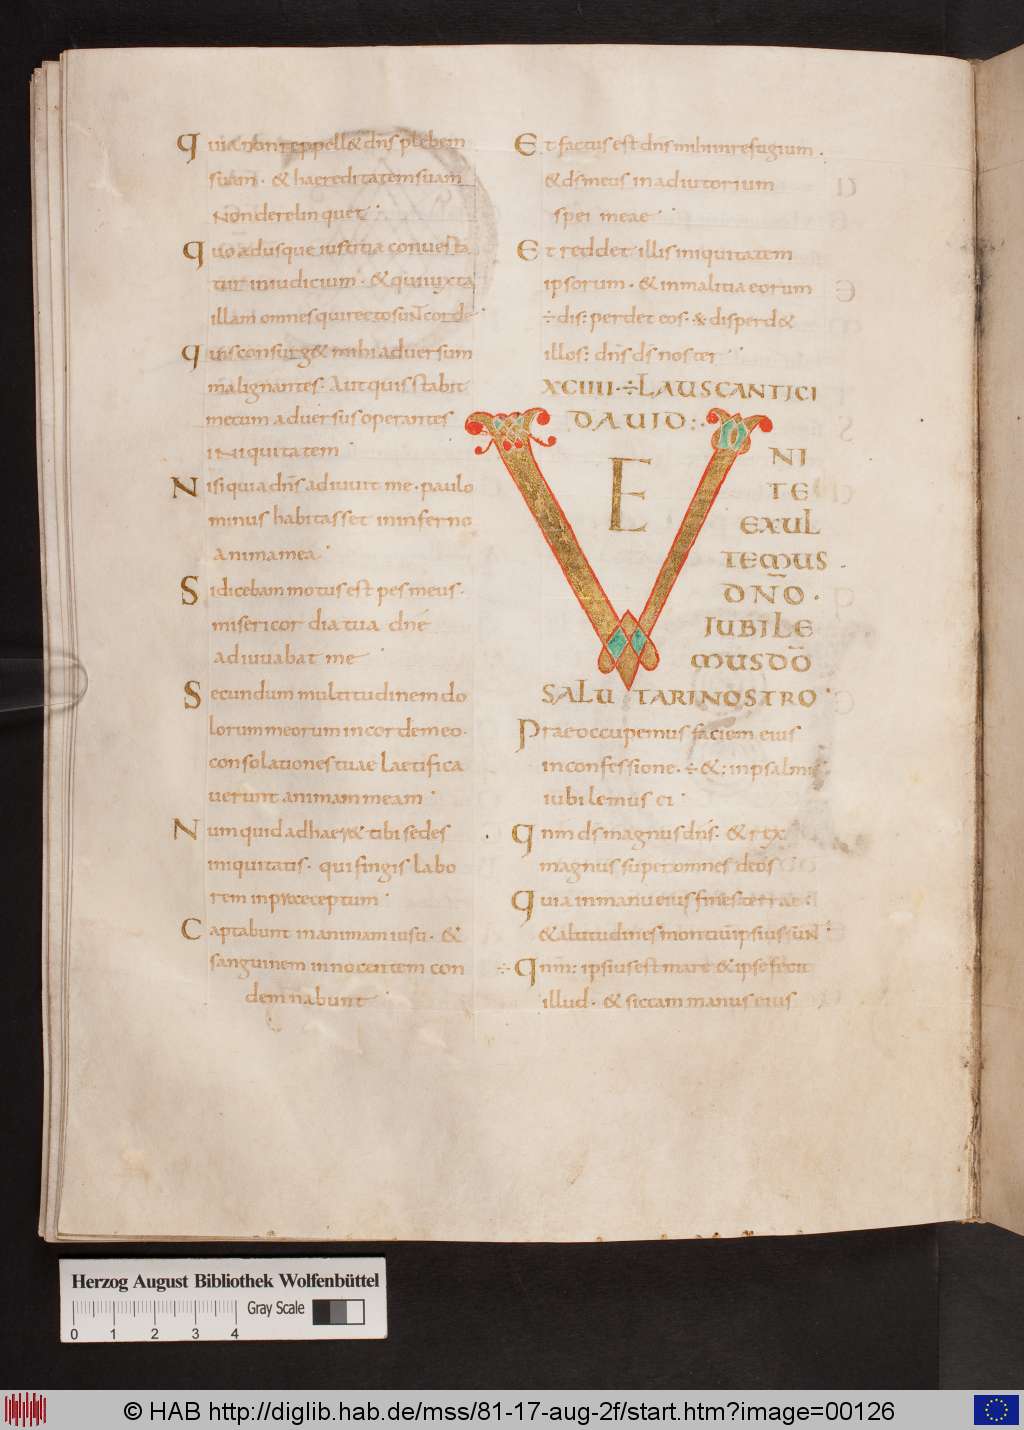 Quia non reppell& dn̄s plebem
suam · & haereditatem suam
Non derelinquet ·
Quo adusque iustitia conuerta
tur in iudicium · & qui iuxta
illam omnes qui recto sunt corde ·
Quis consurg& mihi aduersum
malignantes: Aut quis stabit
mecum aduersus operantes
iniquitatem ·
Nisi quia dn̄s adiuuit me · paulo
minus habitasset in inferno
anima mea ·
Si dicebam motus est pes meus ·
misericordia tua dn̄e
adiuuabat me ·
Secundum multitudinem do
lorum meorum in corde meo ·
consolationes tuae laetifica
uerunt animam meam ·
Numquid adhaer& tibi sedes
iniquitatis · qui fingis labo
rem in praeceptum ·
Captabunt in animam iusti · &
sanguinem innocentem con
demnabunt ·
Et factus est dn̄s mihi in refugium ·
& ds meus in adiutorium
spei meae ·
Et reddet illis iniquitatem
ipsorum · & in malitia eorum
÷dis: perdet eos: ※ disperd&
illos: dn̄s ds̄ noster ·
XCIIII · ÷LAUS CANTICI
DAUID:·
VENI
TE
EXUL
TEMUS
DN̄O ·
IUBILE
MUS DŌ
SALUTARI NOSTRO ·
Praeoccupemus faciem eius
in confessione · ÷&: in psalmis
iubilemus ei ·
Qnm̄ ds magnus dn̄s · & rex
magnus super omnes deos
Quia in manu eius fines terrae:
& altitudines montiū ipsius sūn ·
÷Qnm̄: ipsius est mare & ipse fecit
illud · & siccam manus eius
Herzog August Bibliothek Wolfenbüttel
Gray Scale
0 1 2 3 4
© HAB http://diglib.hab.de/mss/81-17-aug-2f/start.htm?image=00126